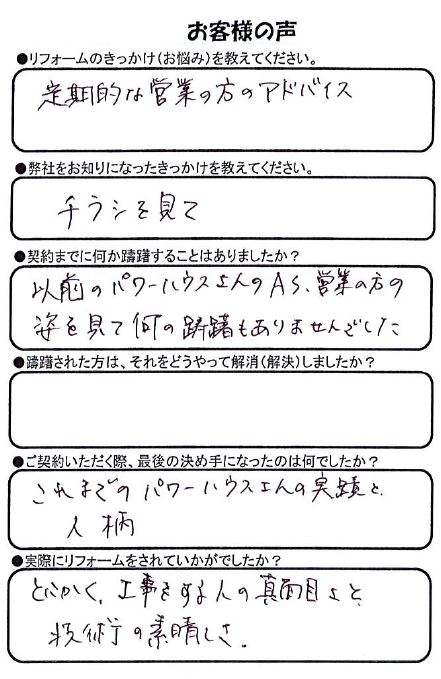 お客様の声
●リフォームのきっかけ(お悩み)を教えてください。
定期的な営業の方のアドバイス
●弊社をお知りになったきっかけを教えてください。
チラシを見て
●契約までに何か躊躇することはありましたか？
以前のパワーハウスさんのAS、営業の方の
姿を見て何の躊躇もありませんでした
●躊躇された方は、それをどうやって解消(解決)しましたか？
●ご契約いただく際、最後の決め手になったのは何でしたか？
これまでのパワーハウスさんの実績と、
人柄
●実際にリフォームをされていかがでしたか？
とにかく、工事をする人の真面目さと、
技術の素晴しさ。